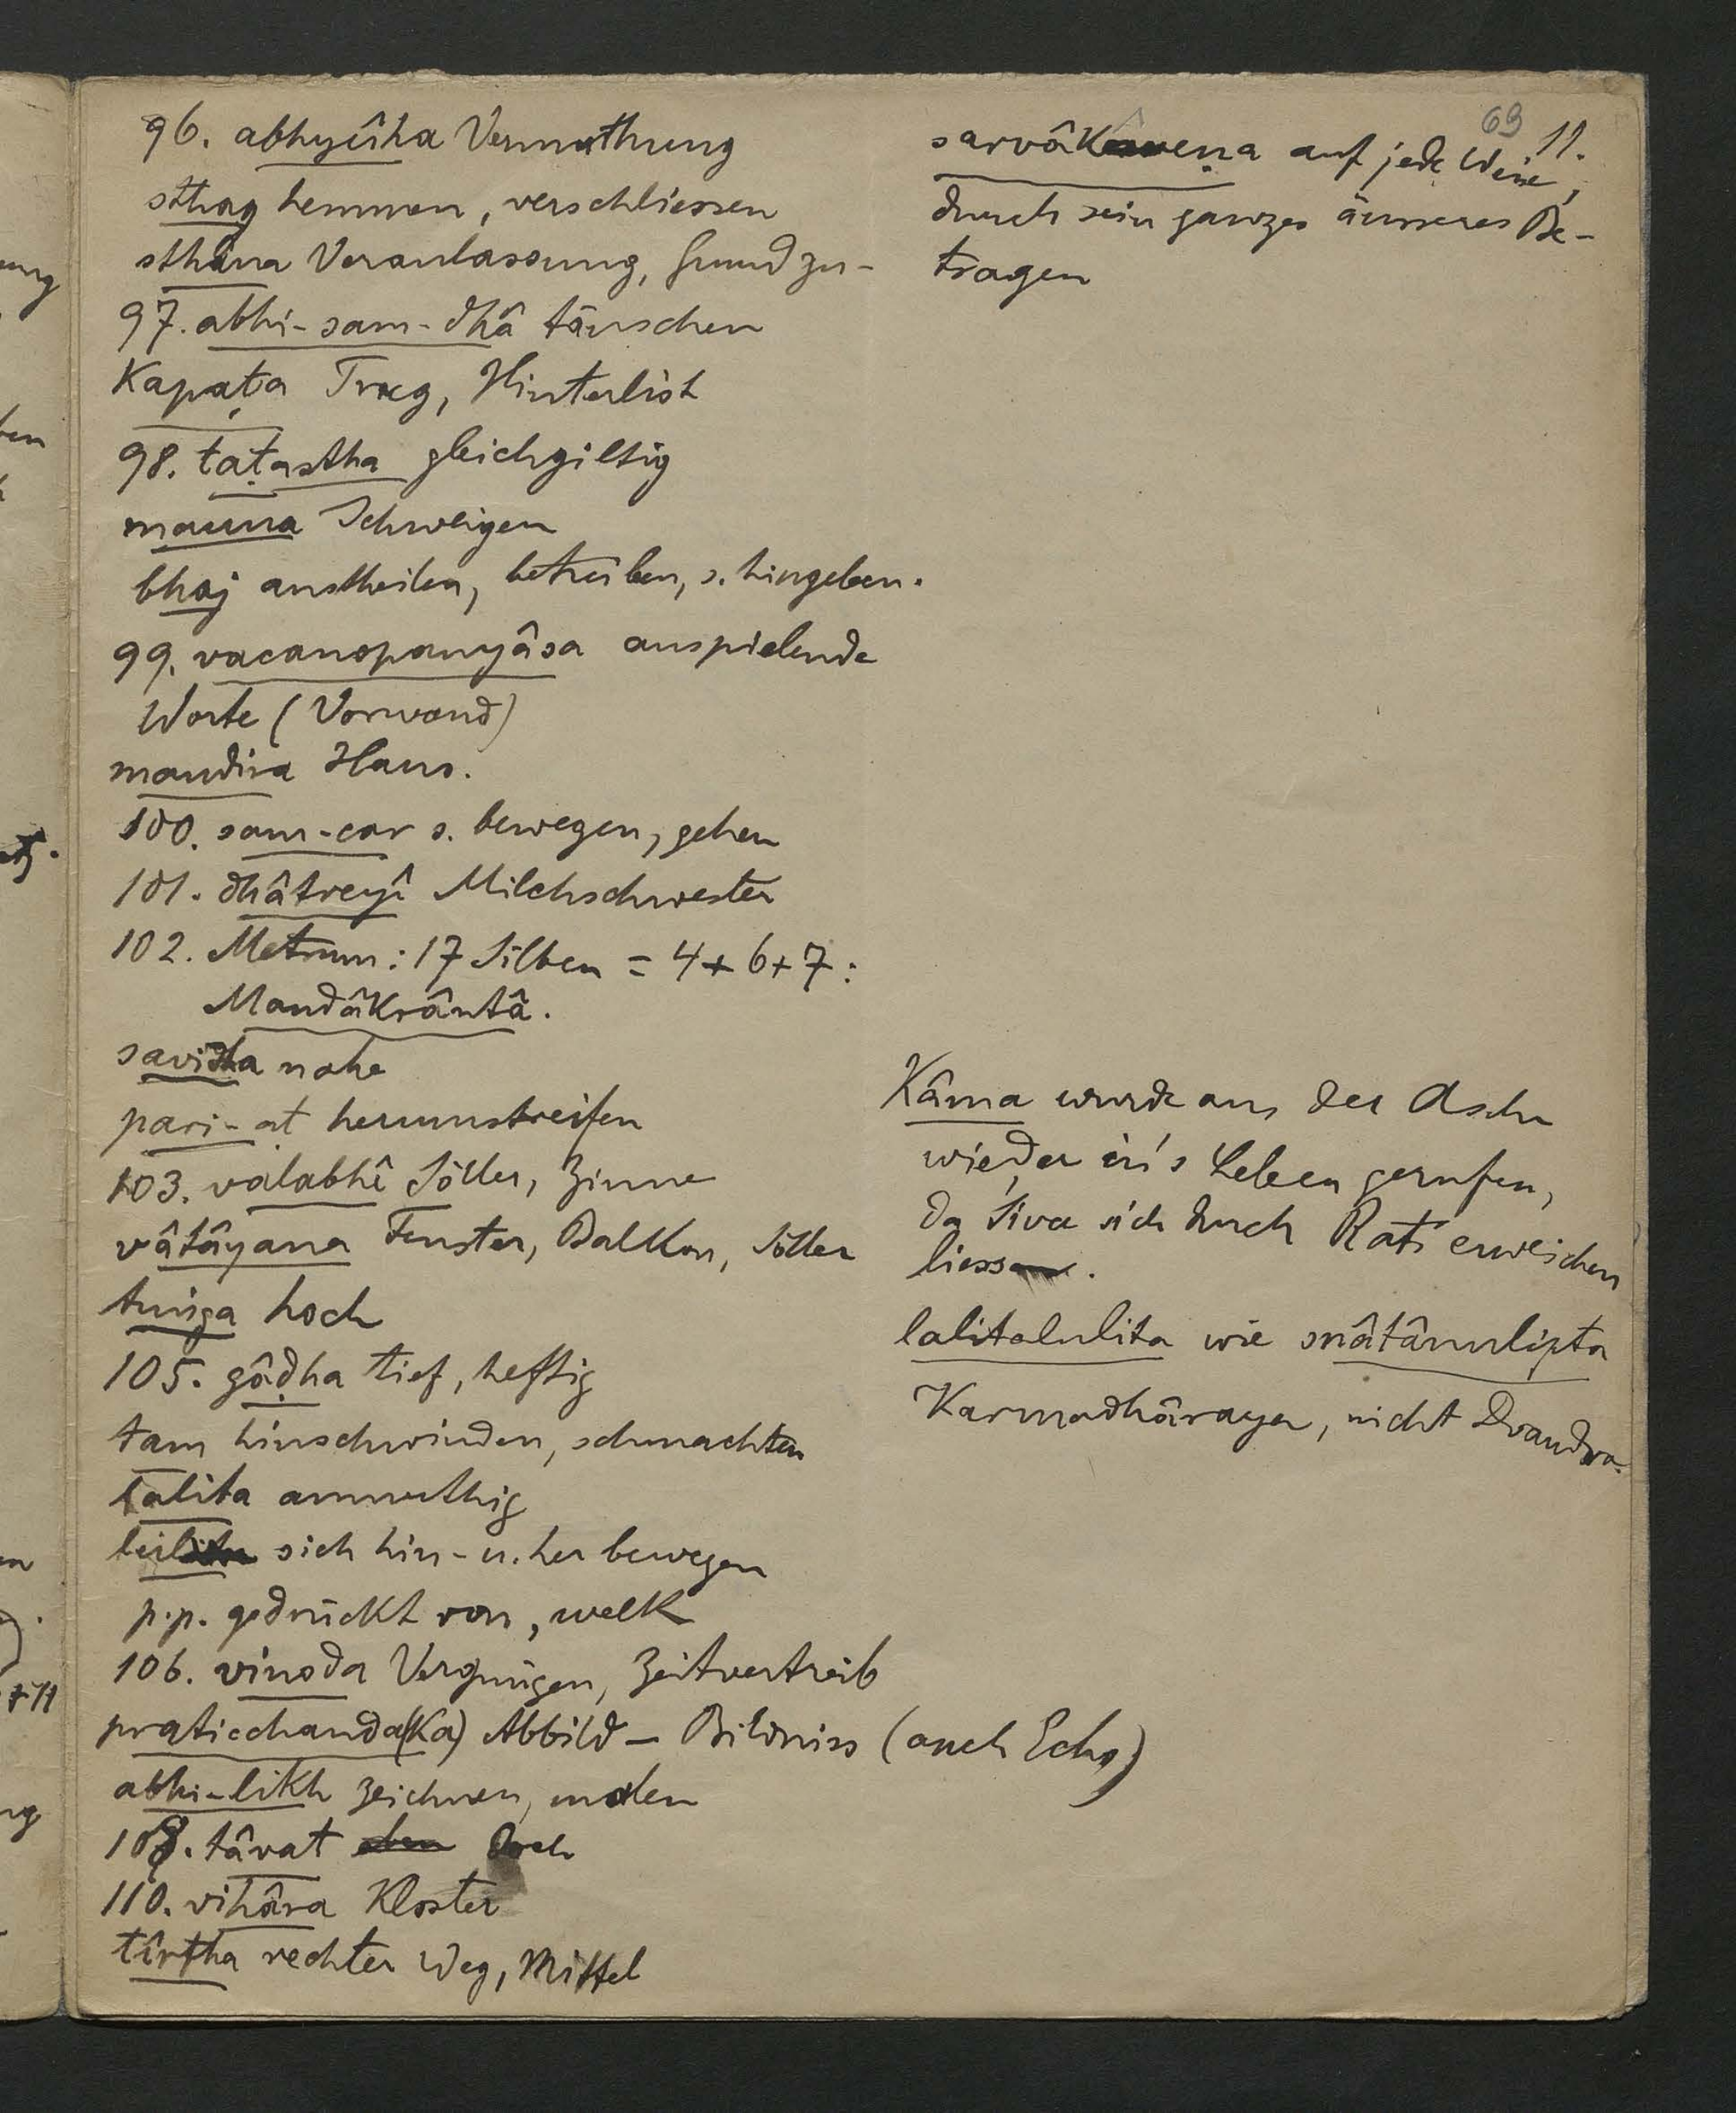 96. abhyûha Vermuthung
sthag hemmen, verschliessen
sthâna Veranlassung, Grund zu-
97. abhi-sam-dhâ täuschen
Kapaṭa Trug, Hinterlist
98. taṭastha gleichgiltig
mauna Schweigen
bhaj austheilen, betreiben, s. hingeben.
99. vacanopanyâsa anspielende
Worte (Vorwand)
mandira Haus.
100. sam-car s. bewegen, gehen
101. dhâtreyî Milchschwester
102. Metrum: 17 Silben = 4+6+7:
Mandâkrântâ.
savidha nahe
pari-aṭ herumstreifen
103. valabhî Söller, Zinne
vâtâyana Fenster, Balkon, Söller
tuṅga hoch
105. gâḍha tief, heftig
tam hinschwinden, schmachten
lalita anmuthig
lul sich hin- u. her bewegen
p.p. gedrückt von, welk
106. vinoda Vergnügen, Zeitvertreib
praticchanda(ka) Abbild – Bildniss (auch Echo)
abhi-likh zeichnen, malen
108. tâvat eben doch
110. vihâra Kloster
tîrtha rechter Weg, Mittel
69 11.
sarvâkâreṇa auf jede Weise,
durch sein ganzes äusseres Be-
tragen
Kâma wurde aus der Asche
wieder in's Leben gerufen,
da Śiva sich durch Rati erweichen
liess.
lalitalulita wie snâtânulipta
Karmadhâraya, nicht Dvandva.